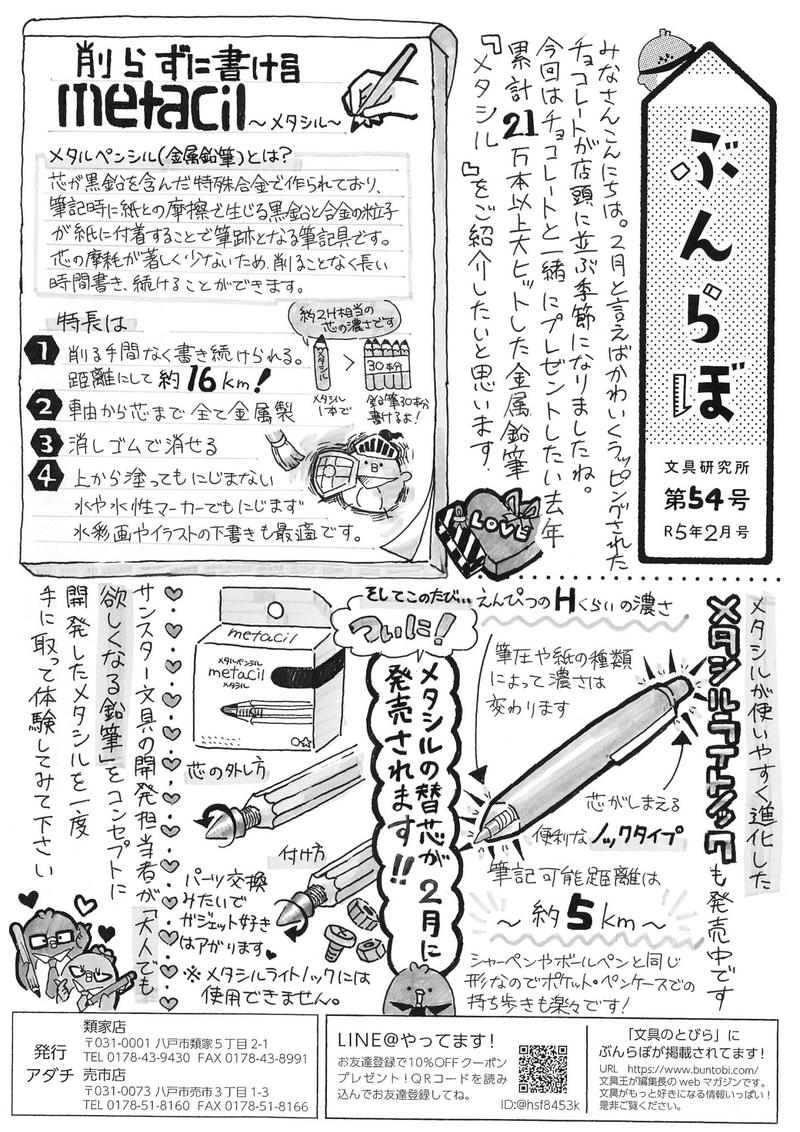 ぶんらぼ
文具研究所
第54号
R5年2月号
みなさんこんにちは。2月と言えばかわいくラッピングされた
チョコレートが店頭に並ぶ季節になりましたね。
今回はチョコレートと一緒にプレゼントしたい去年
累計21万本以上大ヒットした金属鉛筆
『メタシル』をご紹介したいと思います。
LOVE
削らずに書ける
metacil
~メタシル~
メタルペンシル(金属鉛筆)とは?
芯が黒鉛を含んだ特殊合金で作られており、
筆記時に紙との摩擦で生じる黒鉛と合金の粒子
が紙に付着することで筆跡となる筆記具です。
芯の摩耗が著しく少ないため、削ることなく長い
時間書き続けることができます。
特長は
約2H相当の
芯の濃さです
1 削る手間なく書き続けられる。
距離にして約16km!
メタシル
>
30本分
メタシル
1本で
鉛筆30本分
書けるよ!
2 軸から芯まで全て金属製
3 消しゴムで消せる
4 上から塗ってもにじまない
水や水性マーカーでもにじまず
水彩画やイラストの下書きも最適です。
メタシルが使いやすく進化した
メタシルライトノックも発売中です
えんぴつのHくらいの濃さ
筆圧や紙の種類
によって濃さは
変わります
芯がしまえる
便利なノックタイプ
筆記可能距離は
~約5km~
シャーペンやボールペンと同じ
形なのでポケット・ペンケースでの
持ち歩きも楽々です!
そしてこのたび…
ついに!
メタシルの替芯が2月に
発売されます!!
metacil
メタルペンシル
metacil
メタシル
芯の外し方
付け方
パーツ交換
みたいで
ガジェット好き
はアガります
※メタシルライトノックには
使用できません。
サンスター文具の開発担当者が「大人でも
欲しくなる鉛筆」をコンセプトに
開発したメタシルを一度
手に取って体験してみて下さい
発行
アダチ
類家店
〒031-0001 八戸市類家5丁目2-1
TEL 0178-43-9430 FAX 0178-43-8991
売市店
〒031-0073 八戸市売市3丁目1-3
TEL 0178-51-8160 FAX 0178-51-8166
LINE@やってます!
お友達登録で10%OFFクーポン
プレゼント!QRコードを読み
込んでお友達登録してね。
ID:@hsf8453k
「文具のとびら」に
ぶんらぼが掲載されてます!
URL https://www.buntobi.com/
文具王が編集長のwebマガジンです。
文具がもっと好きになる情報いっぱい!
是非ご覧ください。